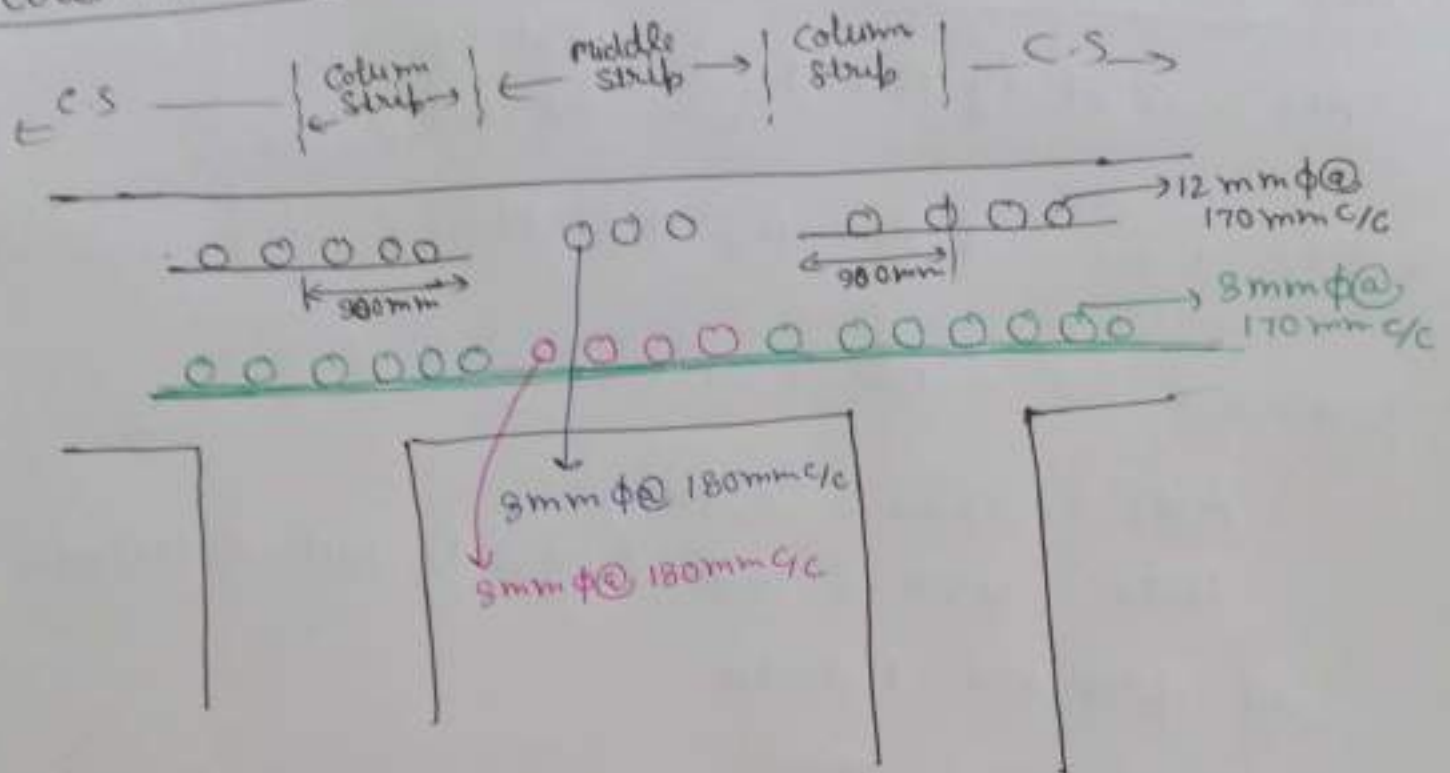 C S
column
strip
middle
strip
column
strip
C.S
12 mm ϕ @
170 mm c/c
900mm
900mm
8mm ϕ @
170 mm c/c
8mm ϕ @ 180mm c/c
8mm ϕ @ 180mm c/c